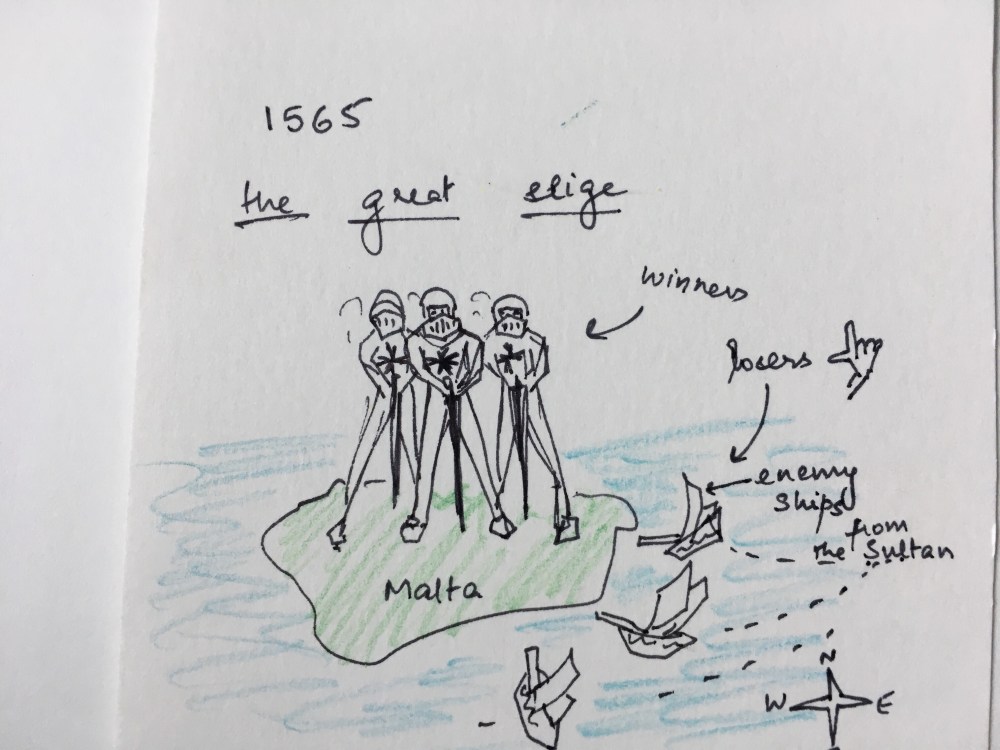 1565
the great seige
winners
losers
enemy
ships
from
the Sultan
Malta
N
W E